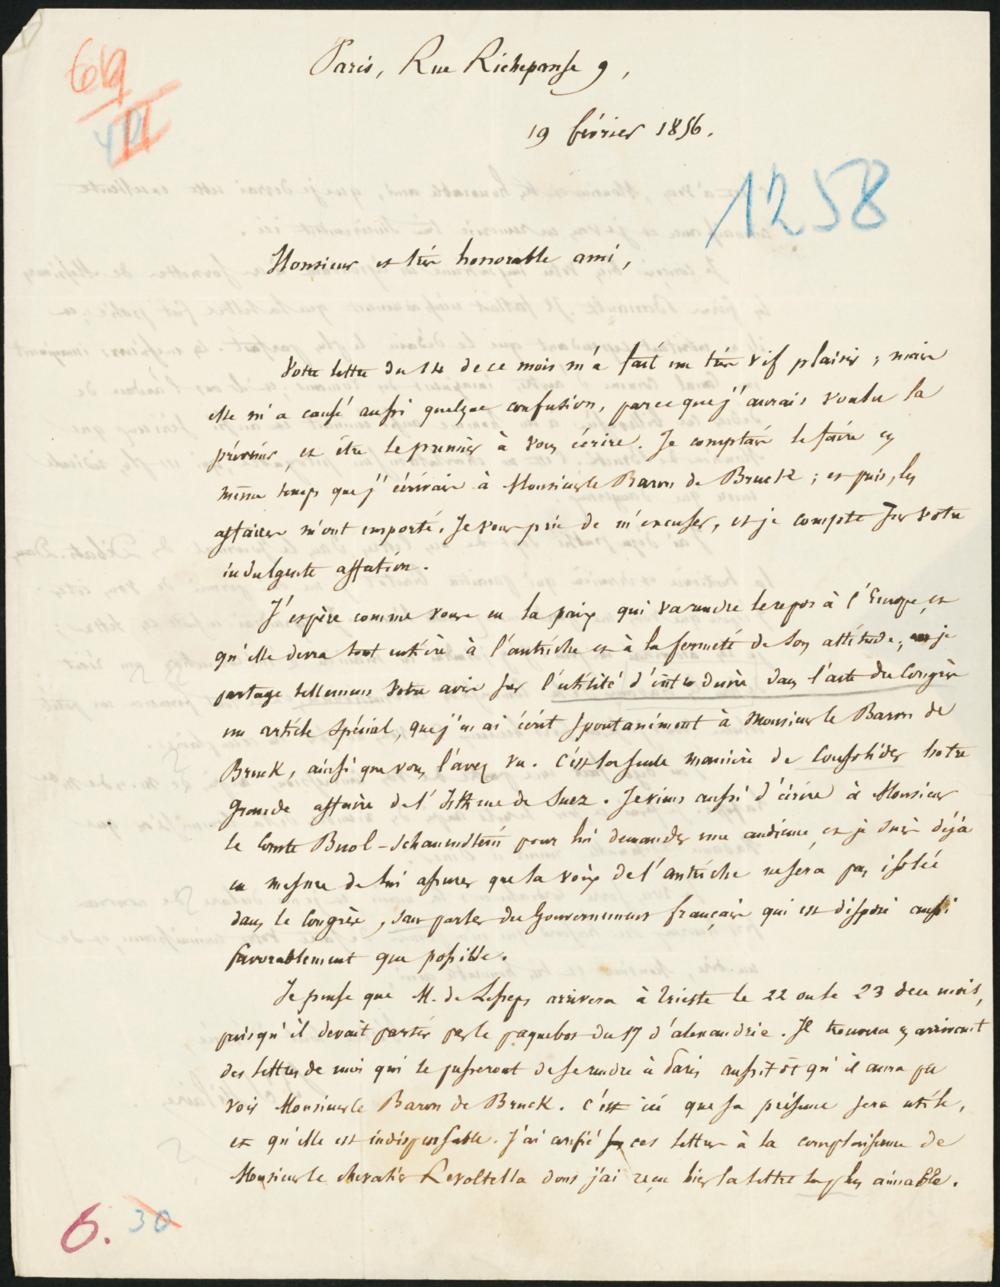 619
II
Paris, Rue Richepanse 9,
19 février 1856.
1258
Monsieur et très honorable ami,
Votre lettre du 14 de ce mois m'a fait un très vif plaisir ; mais
elle m'a causé aussi quelque confusion, parce que j'aurais voulu la
prévenir, et être le premier à vous écrire. Je comptais le faire en
même temps que j'écrivais à Monsieur le Baron de Bruck ; et puis, les
affaires m'ont emporté. Je vous prie de m'excuser, et je compte sur votre
indulgente affection.
J'espère comme vous en la paix qui va rendre le repos à l'Europe, et
qu'elle devra tout entière à l'autriche et à la fermeté de son attitude ; je
partage tellement votre avis sur l'utilité d'introduire dans l'acte du Congrès
un article spécial, que j'en ai écrit spontanément à Monsieur le Baron de
Bruck, ainsi que vous l'avez vu. C'est la seule manière de consolider notre
grande affaire de l'Isthme de Suez. Je viens aussi d'écrire à Monsieur
le Comte Buol-Schauenstein pour lui demander une audience, et je suis déjà
en mesure de lui assurer que la voix de l'autriche ne sera pas isolée
dans le Congrès, sans parler du Gouvernement français qui est disposé aussi
favorablement que possible.
Je pense que M. de Lesseps arrivera à Trieste le 22 ou le 23 de ce mois,
puisqu'il devait partir par le paquebot du 17 d'alexandrie. Il trouvera en arrivant
des lettres de moi qui le presseront de se rendre à Paris aussitôt qu'il aura pu
voir Monsieur le Baron de Bruck. C'est ici que sa présence sera utile,
et qu'elle est indispensable. J'ai confié ces lettres à la complaisance de
Monsieur le chevalier Revoltella dont j'ai reçu hier la lettre la plus aimable.
6.
30